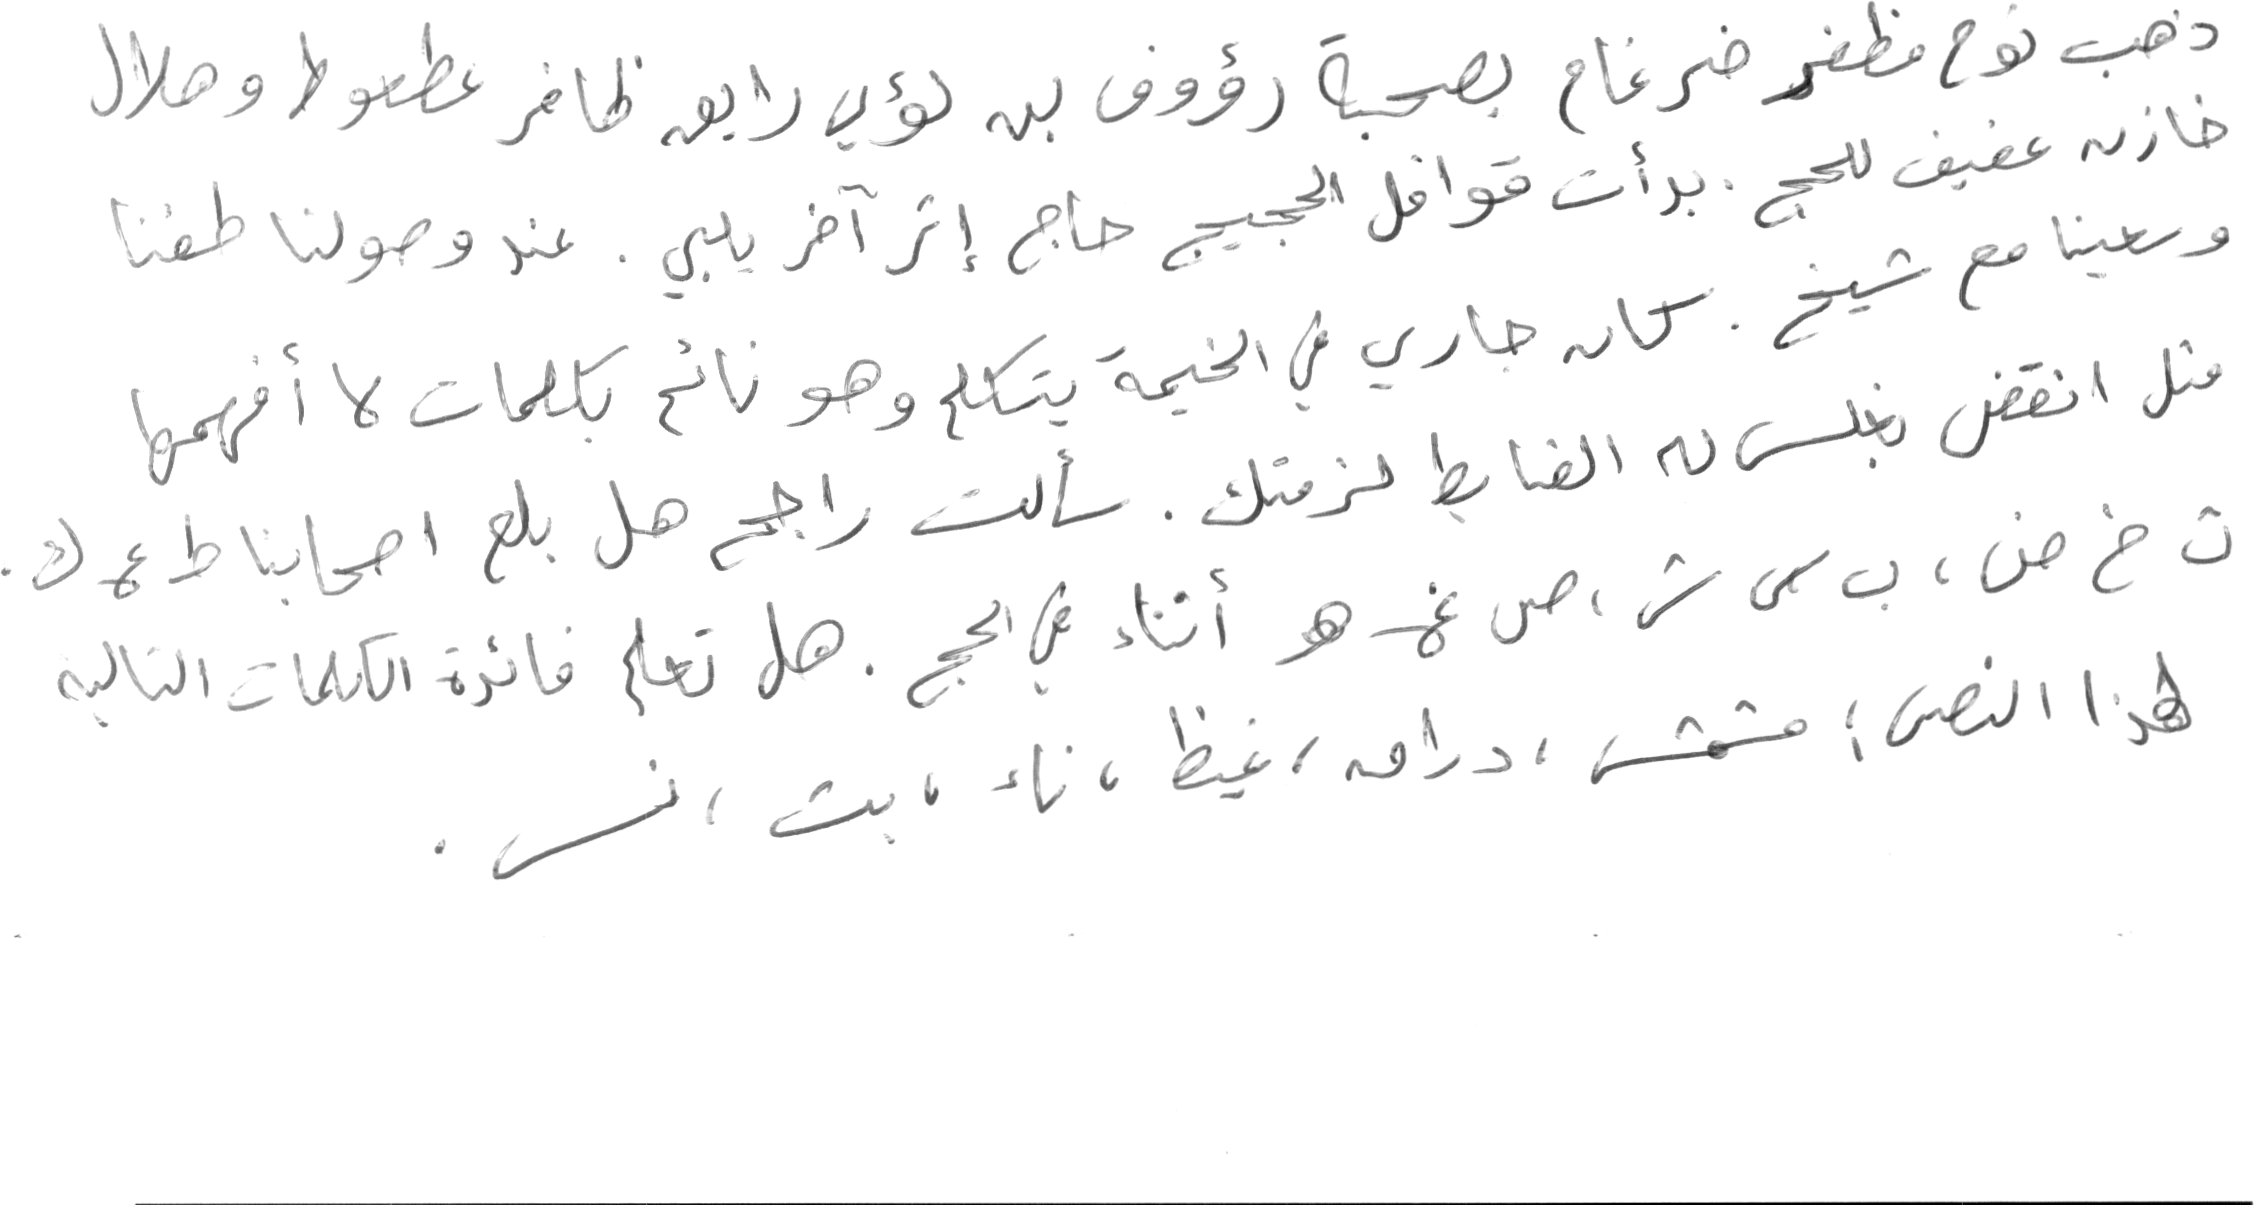 ذهب نوح مظفر ضرغام بصحبة رؤوف بن لؤي رايق ظافر عطعوط وهلال
خازن عفيف للحج . بدأت قوافل الحجيج حاج إثر آخر يلبي . عند وصولنا طفنا
وسعينا مع شيخ . كان جاري في الخيمة يتكلم وهو نائم بكلمات لا أفهمها
مثل انقض بغلس لا الضابط لزمتك . سألت راجح هل بلع اصحابنا ط ع ك .
ث خ ض ، ب س ش ، ص غ هو أثناء في الحج . هل تعلم فائدة الكلمات التالية
لهذا النص ؛ مشمش ، درامه ، غيظ ، ناء ، بت ، نس .